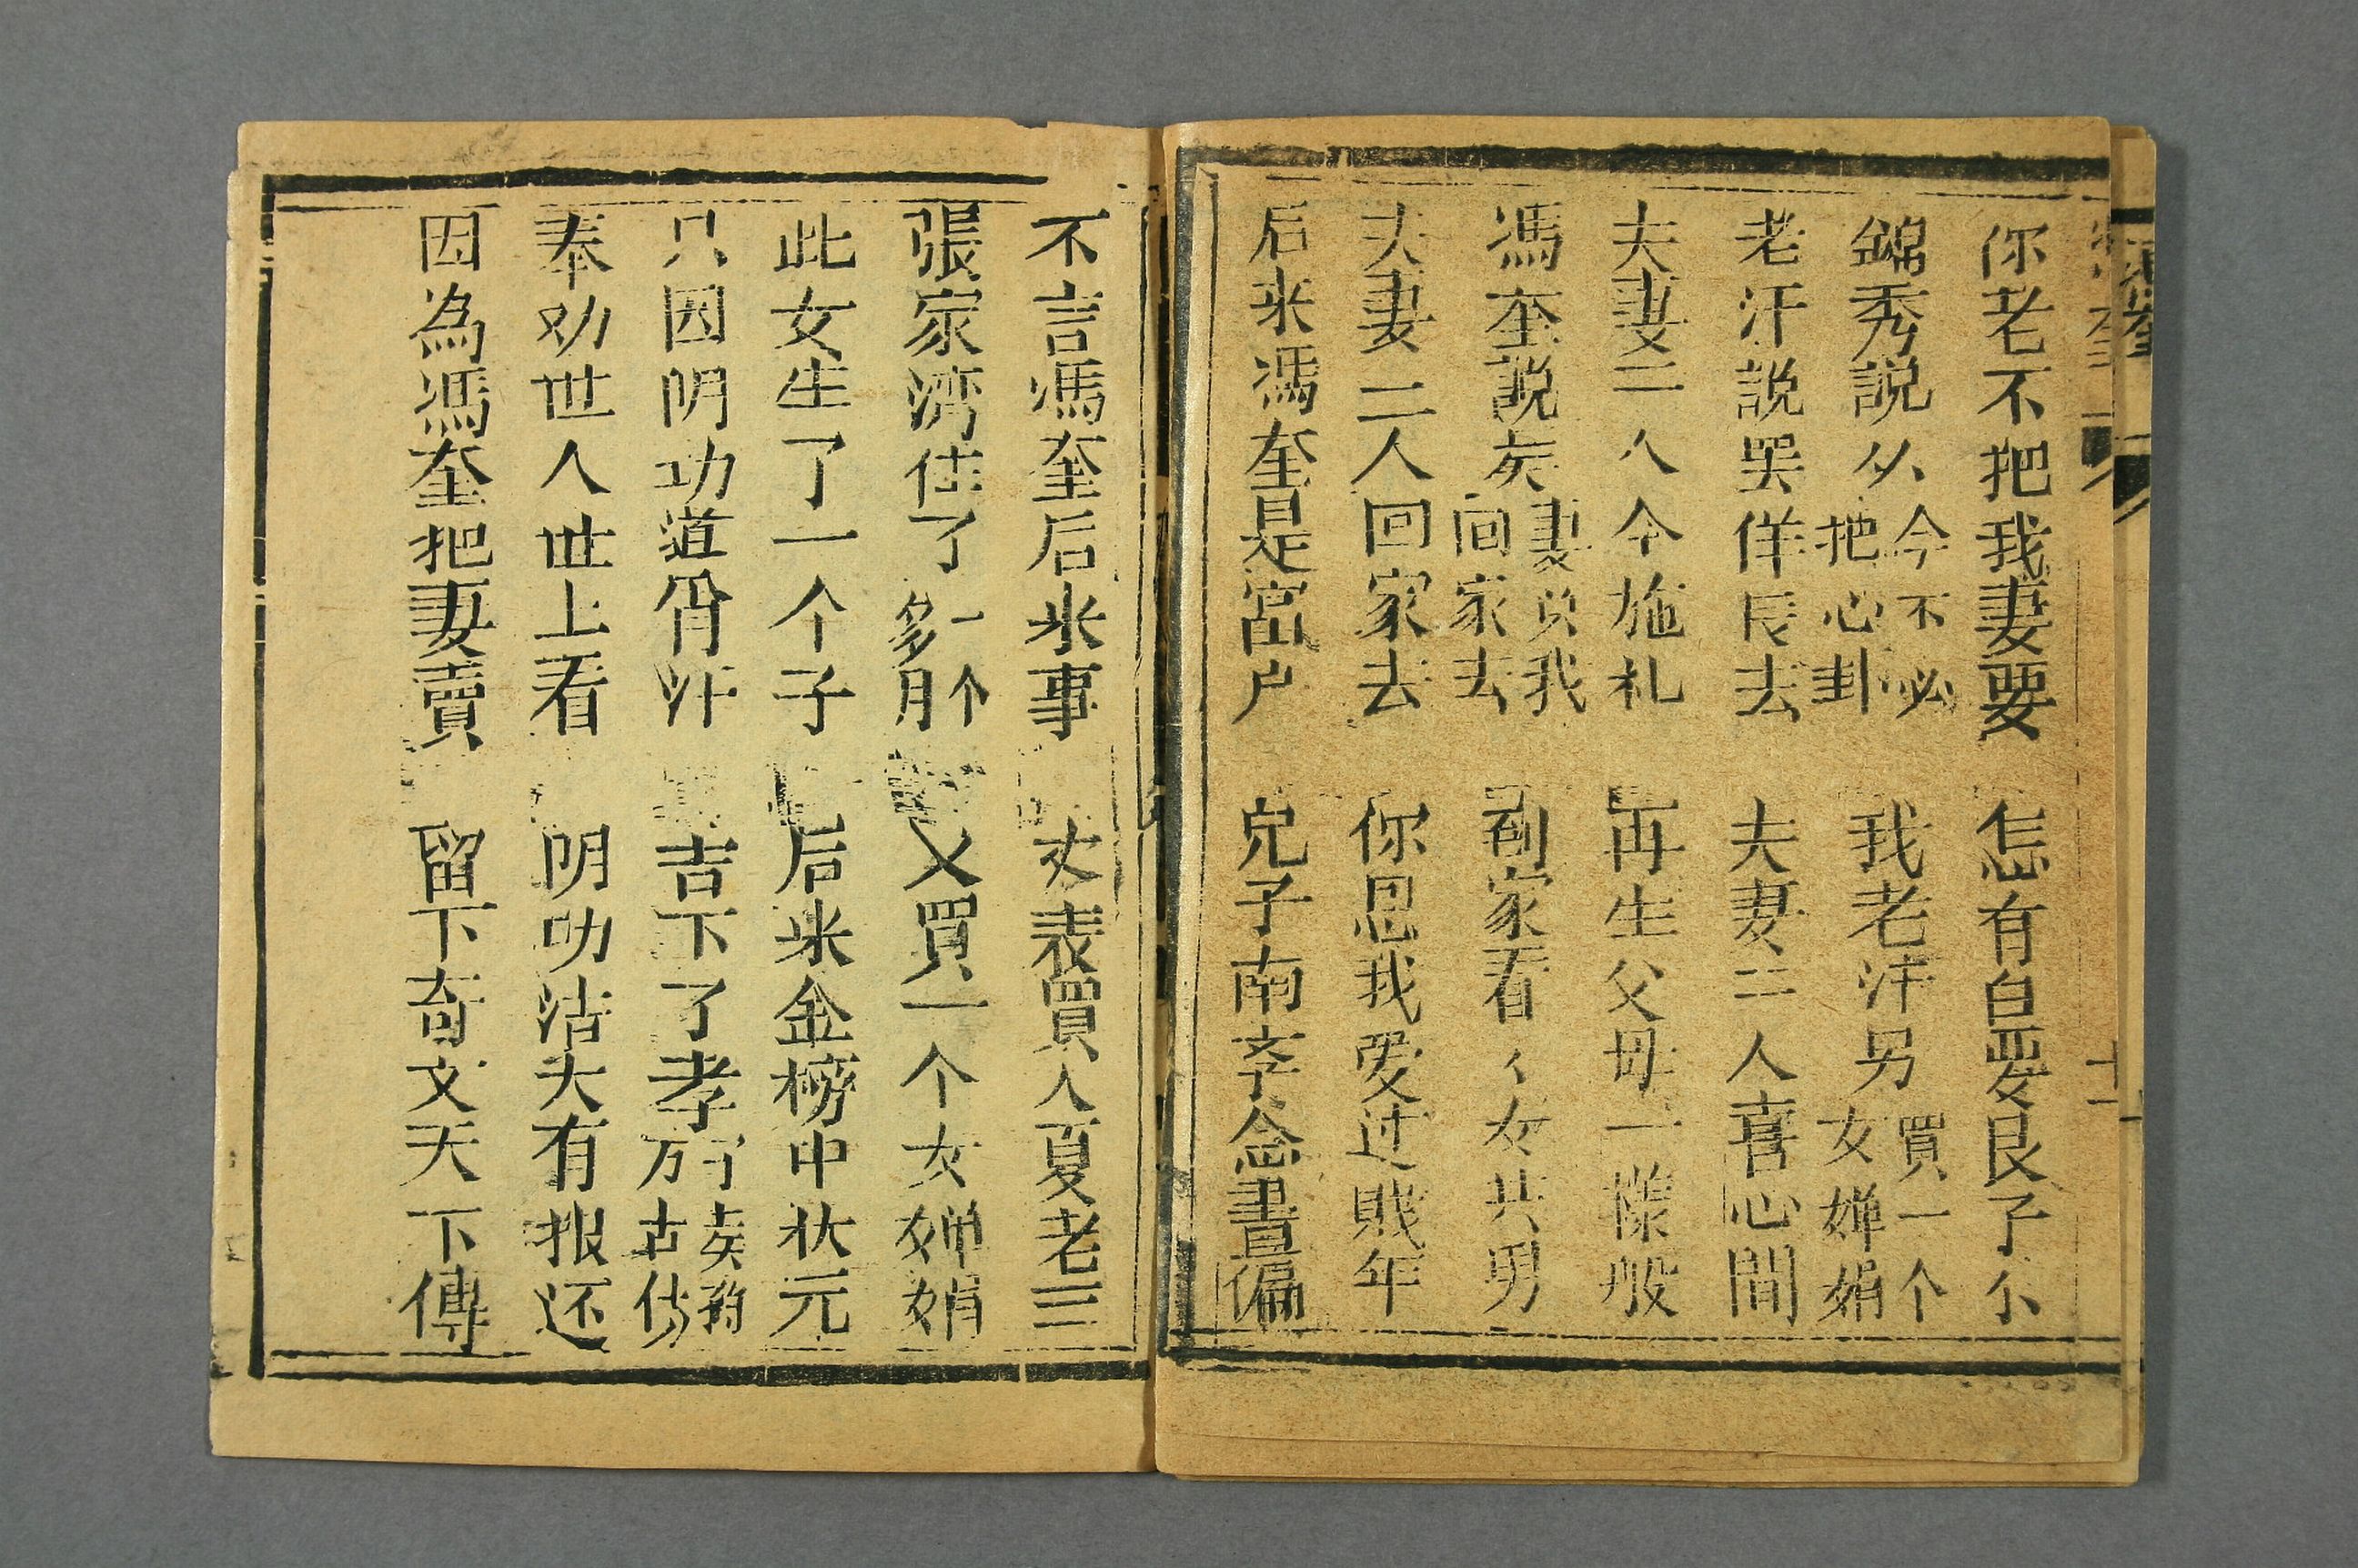 馮奎
十一
你老不把我妻要 怎有白艮子尓
錦秀説从今不必把心卦 我老汗另買一个女婵娟
老汗説罢佯長去 夫妻二人喜心間
夫妻二人令施礼 再生父母一樣般
馮奎説矣妻兑我回家去 到家看ㄑ女共男
夫妻二人回家去 你恩我愛过賤年
后来馮奎是富户 兒子南斈念書
不言馮奎后来事 丈表買人夏老三
張家湾住了一个多月 又買一个女婵娟
此女生了一个子 后来金榜中状元
只因阴功道 吉下了孝万古
奉劝世人世上看 阴功沽天有报还
因為馮奎把妻賣 留下奇文天下傳